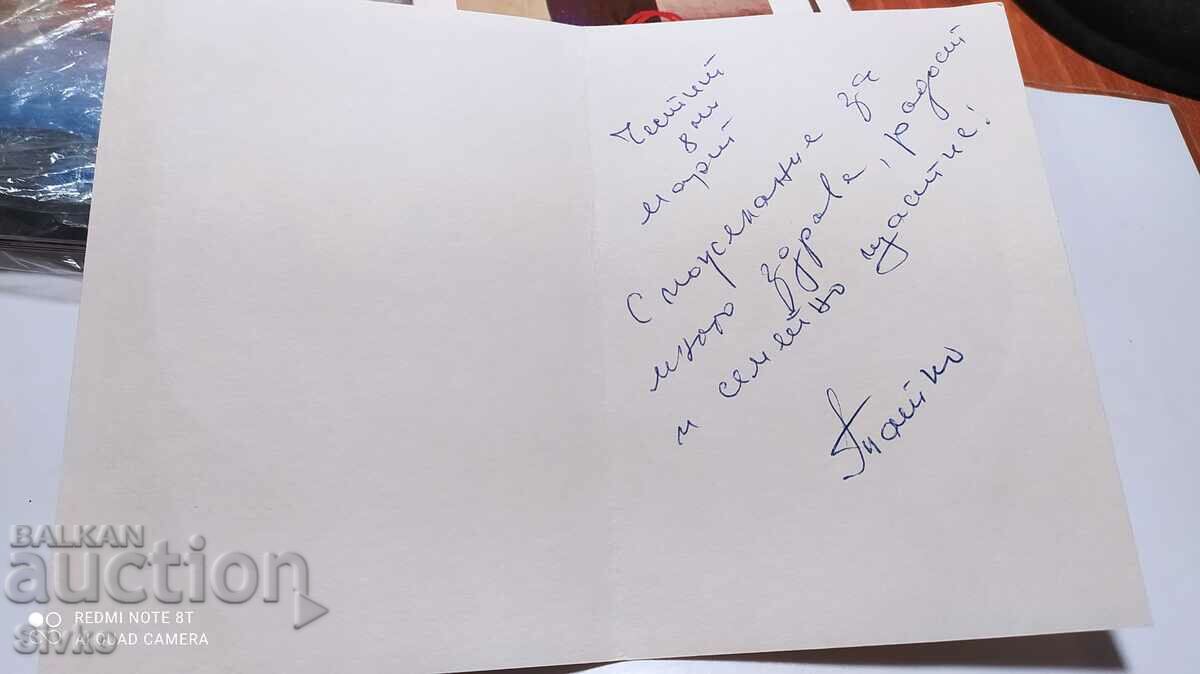 Честит
8 ми
март
С пожелание за
много здраве, радост
и семейно щастие!
Татко
BALKAN
auction
REDMI NOTE 8T
AI QUAD CAMERA
Sivko